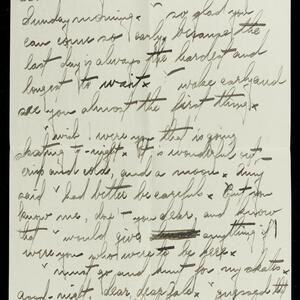 Sunday morning. so glad you
can come so early because the
last day is always the hardest and
longest to wait. wake early and
see you almost the first thing.
I wish I were you that is going
skating to-night. It is wonderful out
crisp and cold, and a moon.
said I had better be careful. But you
know me, dear you dear, and know
that I would give anything if I
were you who were to be here.
I must go and hunt for my skates.
Good-night dear dear I guessed it